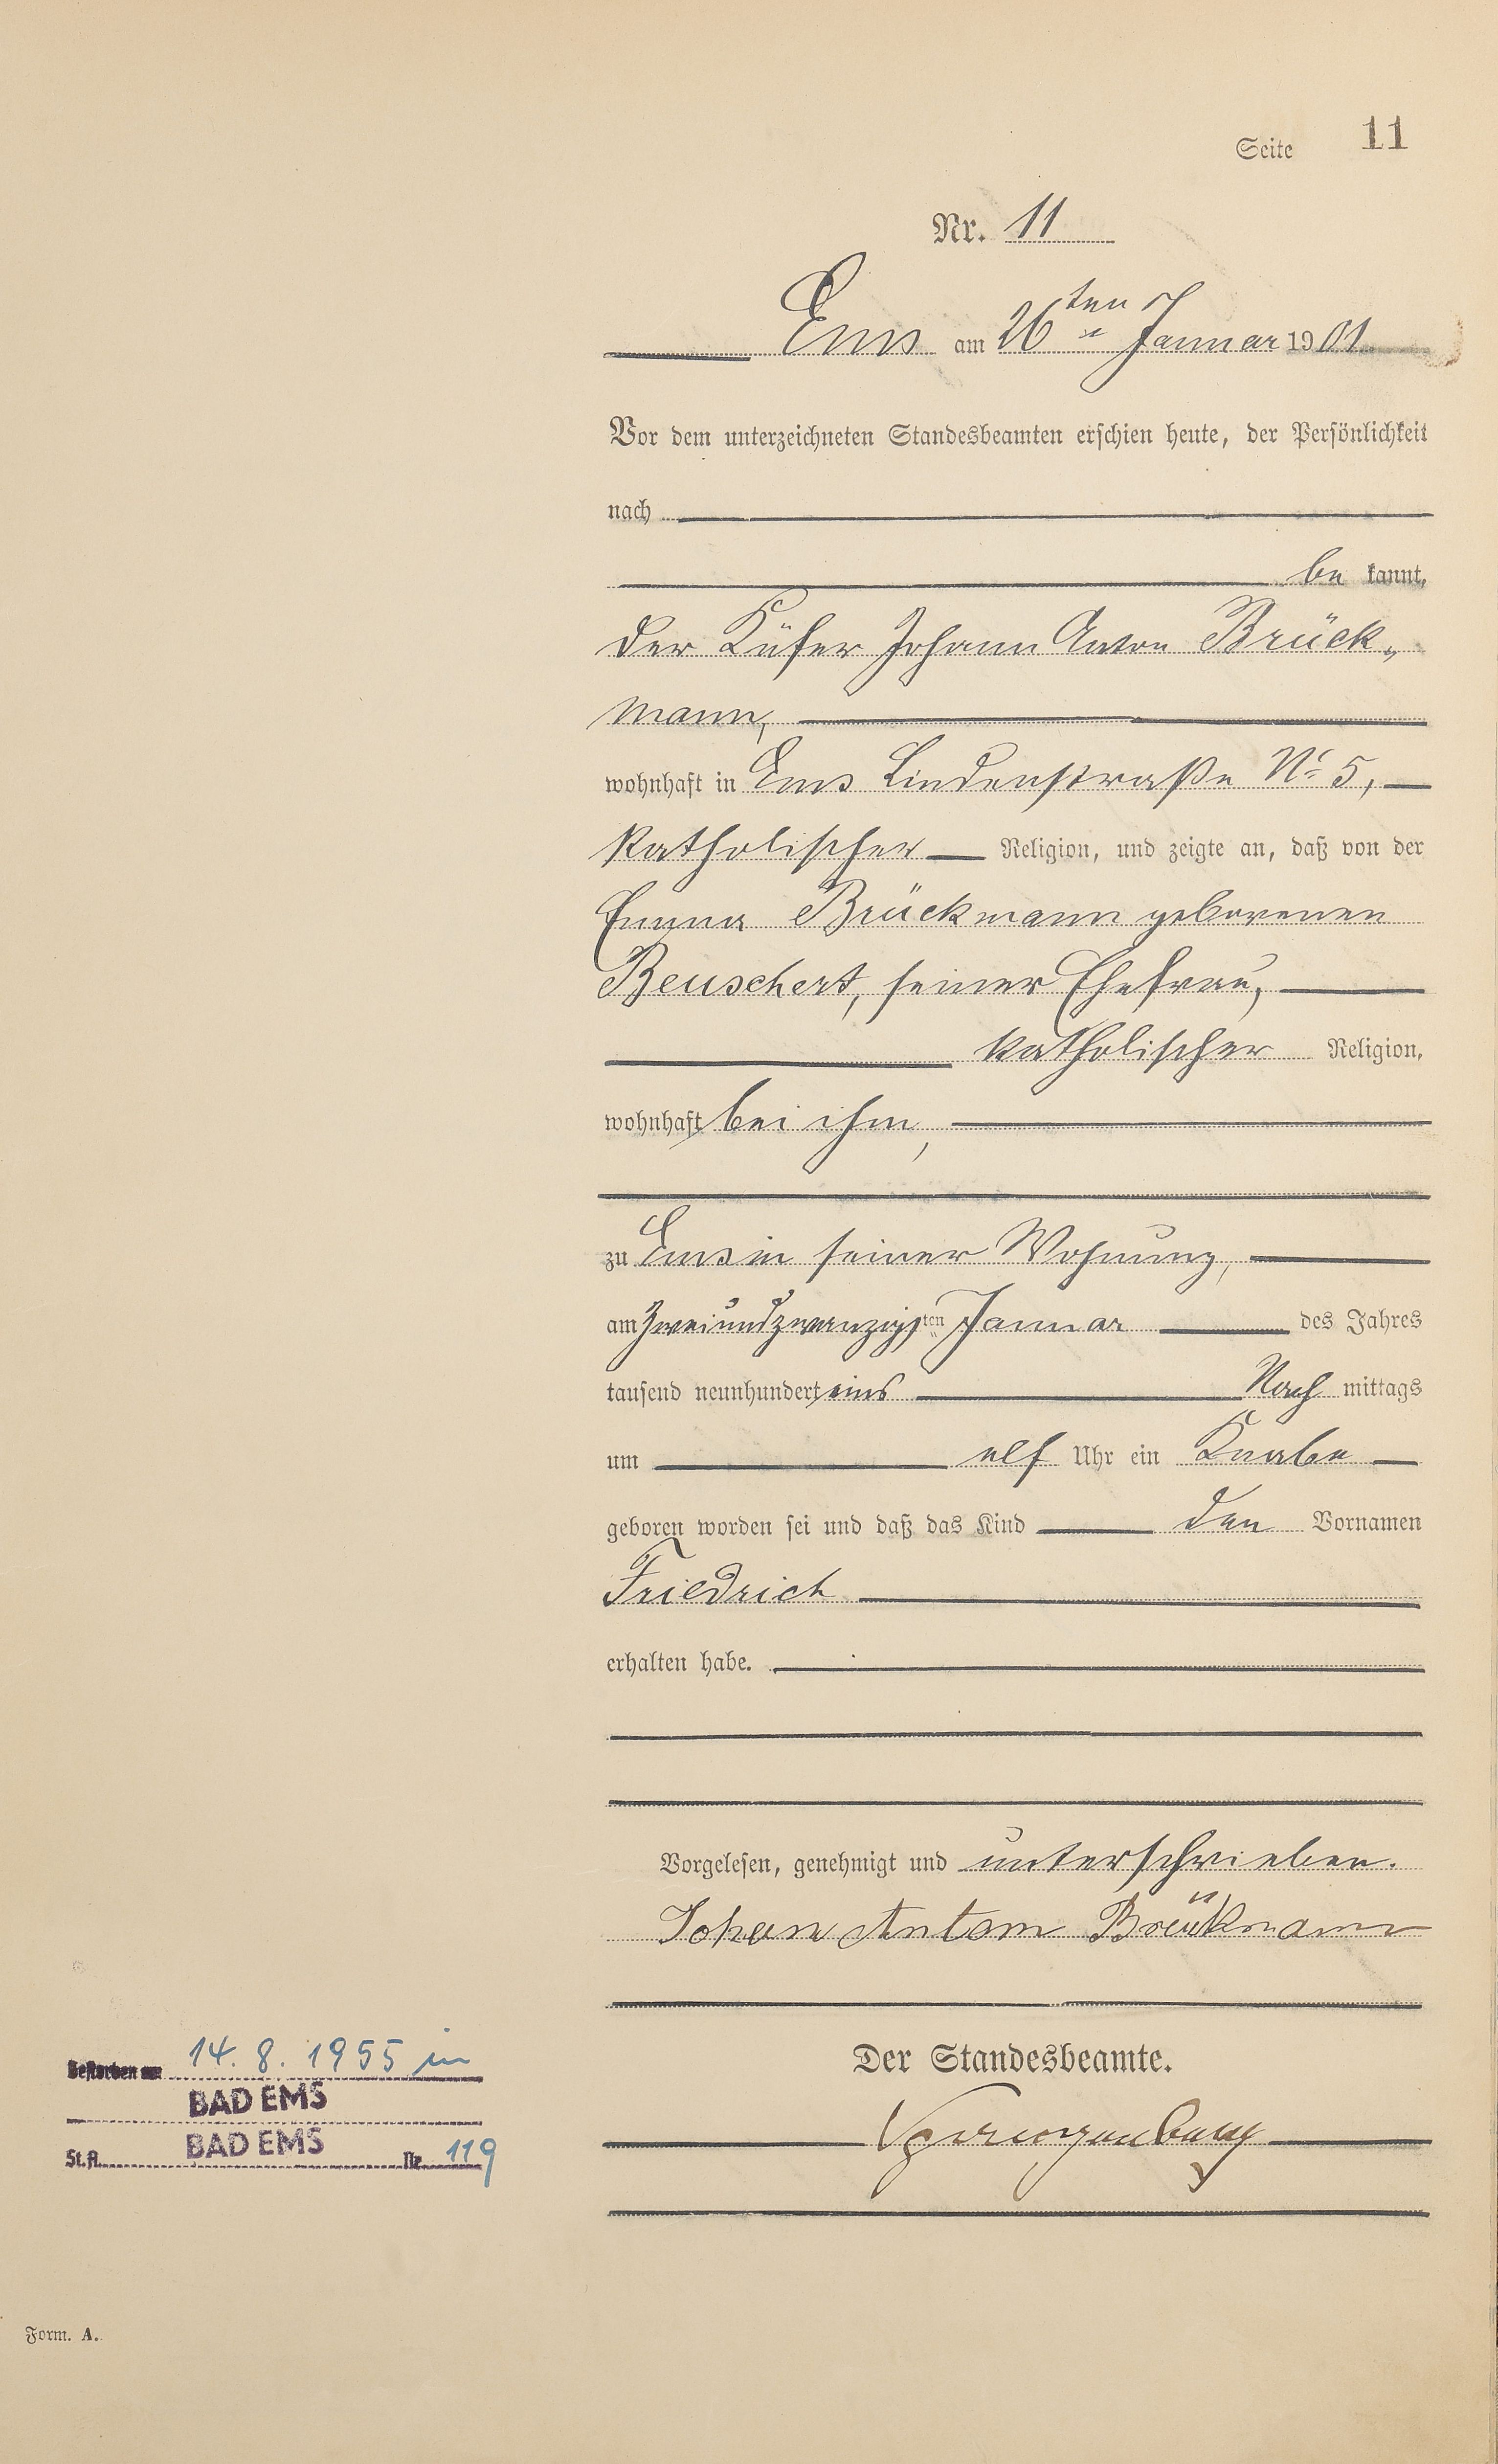 Seite 11
Nr. 11
Ems am 26ten Januar 1901
Vor dem unterzeichneten Standesbeamten erschien heute, der Persönlichkeit
nach
be kannt,
der Küfer Johann Anton Brück-
mann,
wohnhaft in Ems Lindenstraße No 5,
katholischer Religion, und zeigte an, daß von der
Emma Brückmann geborenen
Beuschert, seiner Ehefrau,
katholischer Religion,
wohnhaft bei ihm,
zu Ems in seiner Wohnung,
am zweiundzwanzigsten Januar des Jahres
tausend neunhundert eins Nach mittags
um elf Uhr ein Knabe
geboren worden sei und daß das Kind den Vornamen
Friedrich
erhalten habe.
Vorgelesen, genehmigt und unterschrieben.
Johan Antom Brückmann
Der Standesbeamte.
Gestorben am 14. 8. 1955 in
BAD EMS
St.A. BAD EMS Nr. 119
Form. A.